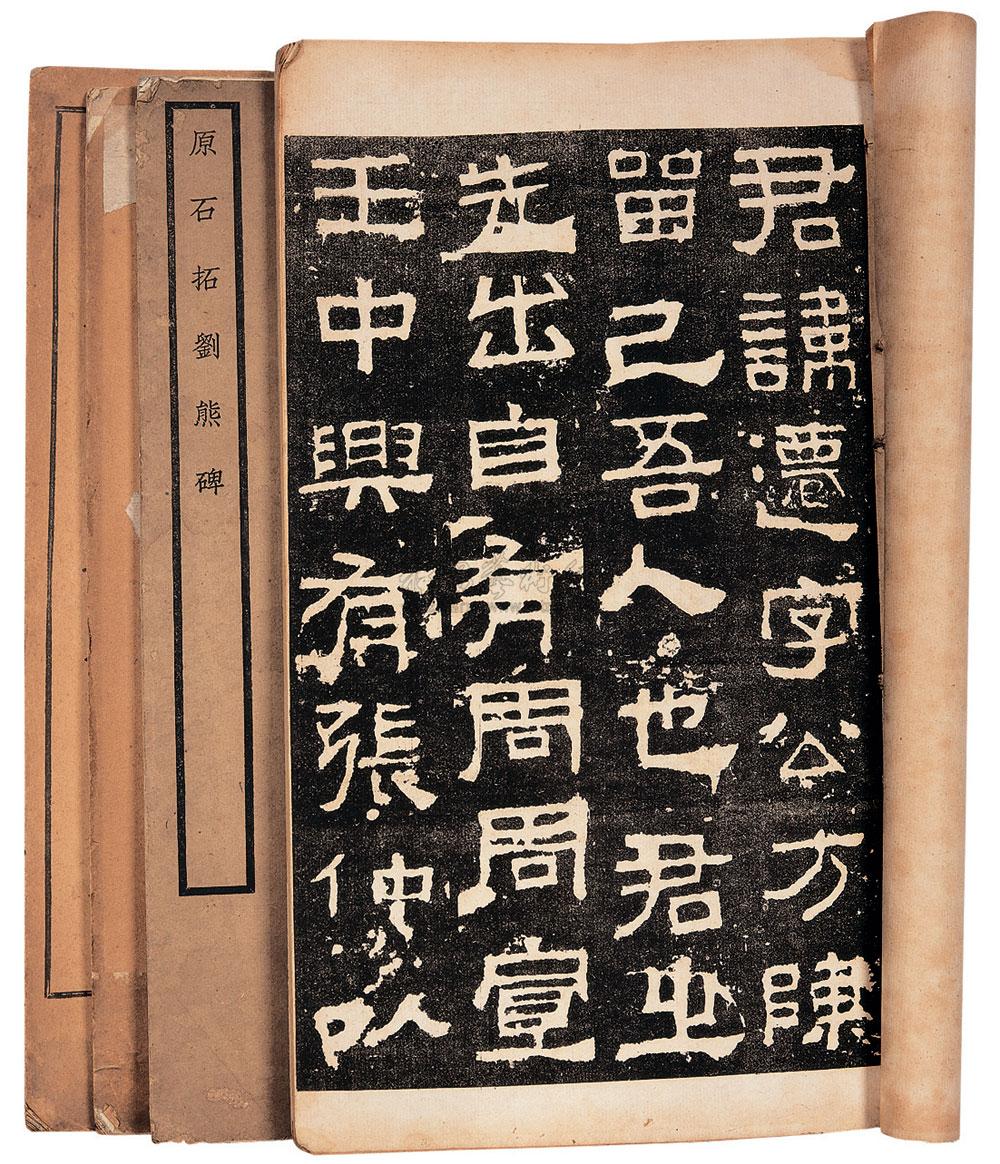 君諱遷字公方陳
留己吾人也君之
先出自有周周宣
王中興有張仲以
原石拓劉熊碑